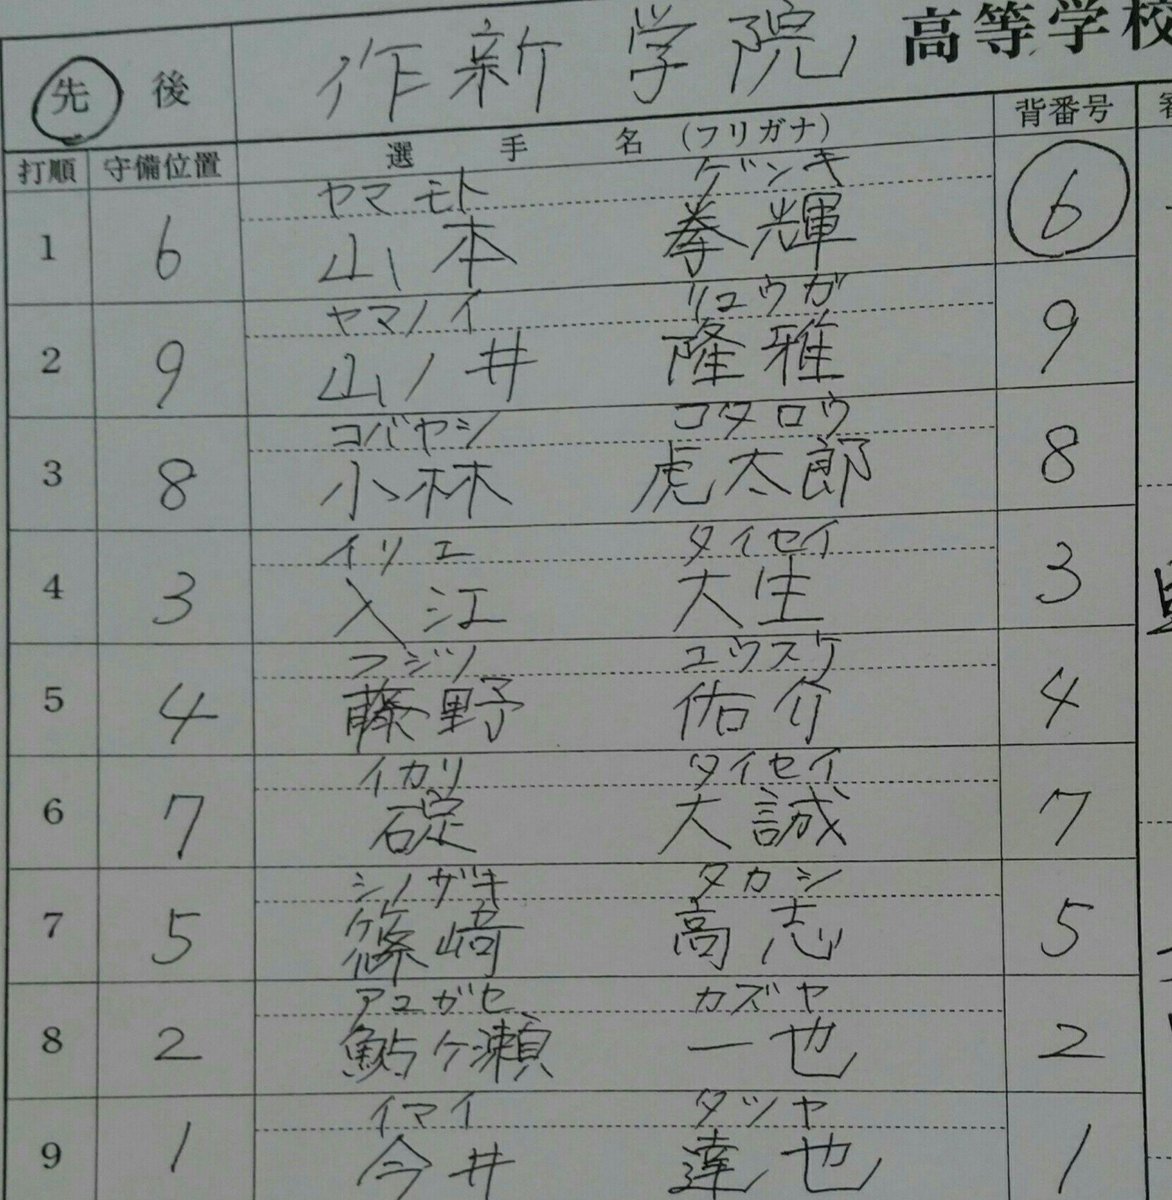 先 後 作新学院 高等学校
打順 守備位置 選手名(フリガナ) 背番号
ヤマモト ゲンキ
1 6 山本 拳輝 6
ヤマノイ リュウガ
2 9 山ノ井 隆雅 9
コバヤシ コタロウ
3 8 小林 虎太郎 8
イリエ タイセイ
4 3 入江 大生 3
フジノ ユウスケ
5 4 藤野 佑介 4
イカリ タイセイ
6 7 碇 大誠 7
シノザキ タカシ
7 5 篠﨑 高志 5
アユガセ カズヤ
8 2 鮎ケ瀬 一也 2
イマイ タツヤ
9 1 今井 達也 1